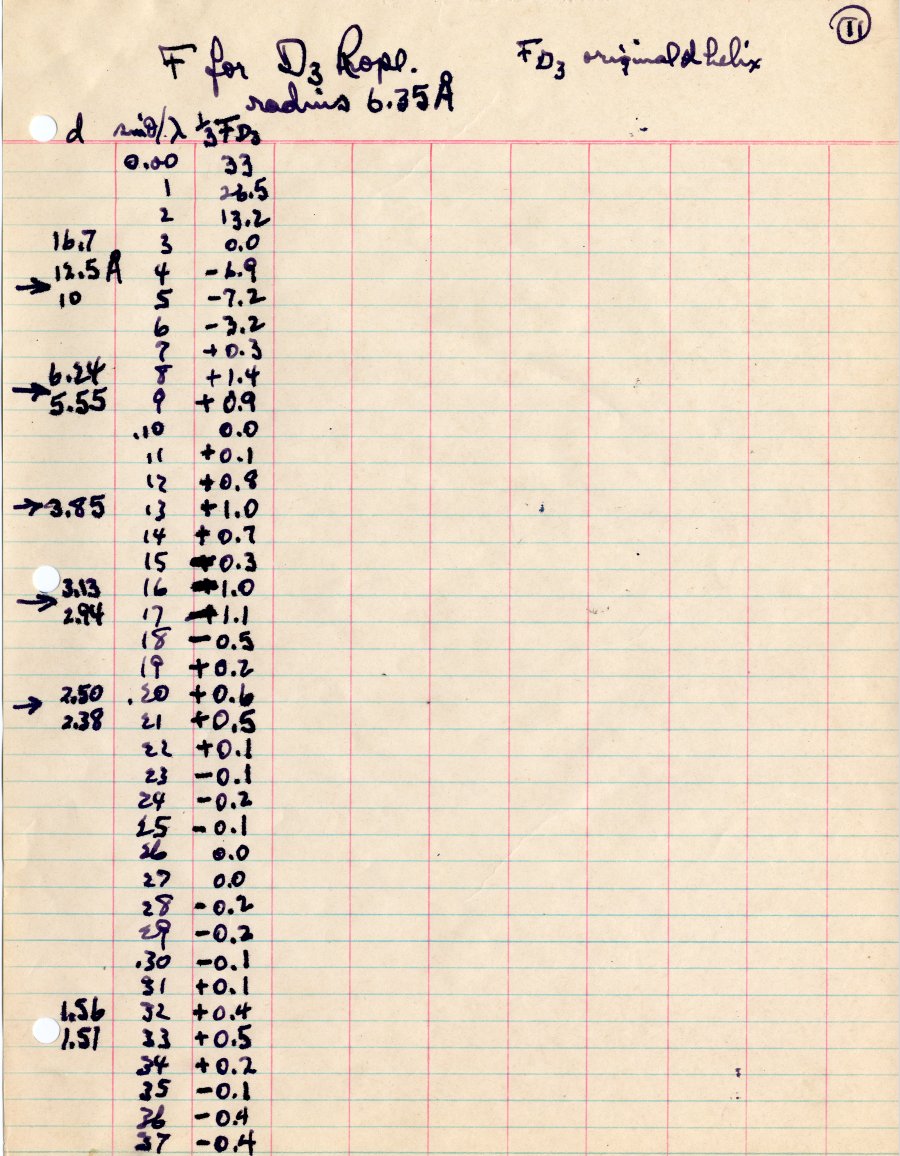 11
F for D3 Rope. FD3 original α helix
radius 6.35 Å
d sinθ/λ 1/3 FD3
0.00 33
1 26.5
2 13.2
16.7 3 0.0
12.5 Å 4 -6.9
→
10 5 -7.2
6 -3.2
7 +0.3
6.24 8 +1.4
→
5.55 9 +0.9
.10 0.0
11 +0.1
12 +0.8
→ 3.85 13 +1.0
14 +0.7
15 +0.3
3.13 16 +1.0
→
2.94 17 +1.1
18 -0.5
19 +0.2
2.50 .20 +0.6
→
2.38 21 +0.5
22 +0.1
23 -0.1
24 -0.2
25 -0.1
26 0.0
27 0.0
28 -0.2
29 -0.2
.30 -0.1
31 +0.1
1.56 32 +0.4
1.51 33 +0.5
34 +0.2
35 -0.1
36 -0.4
37 -0.4